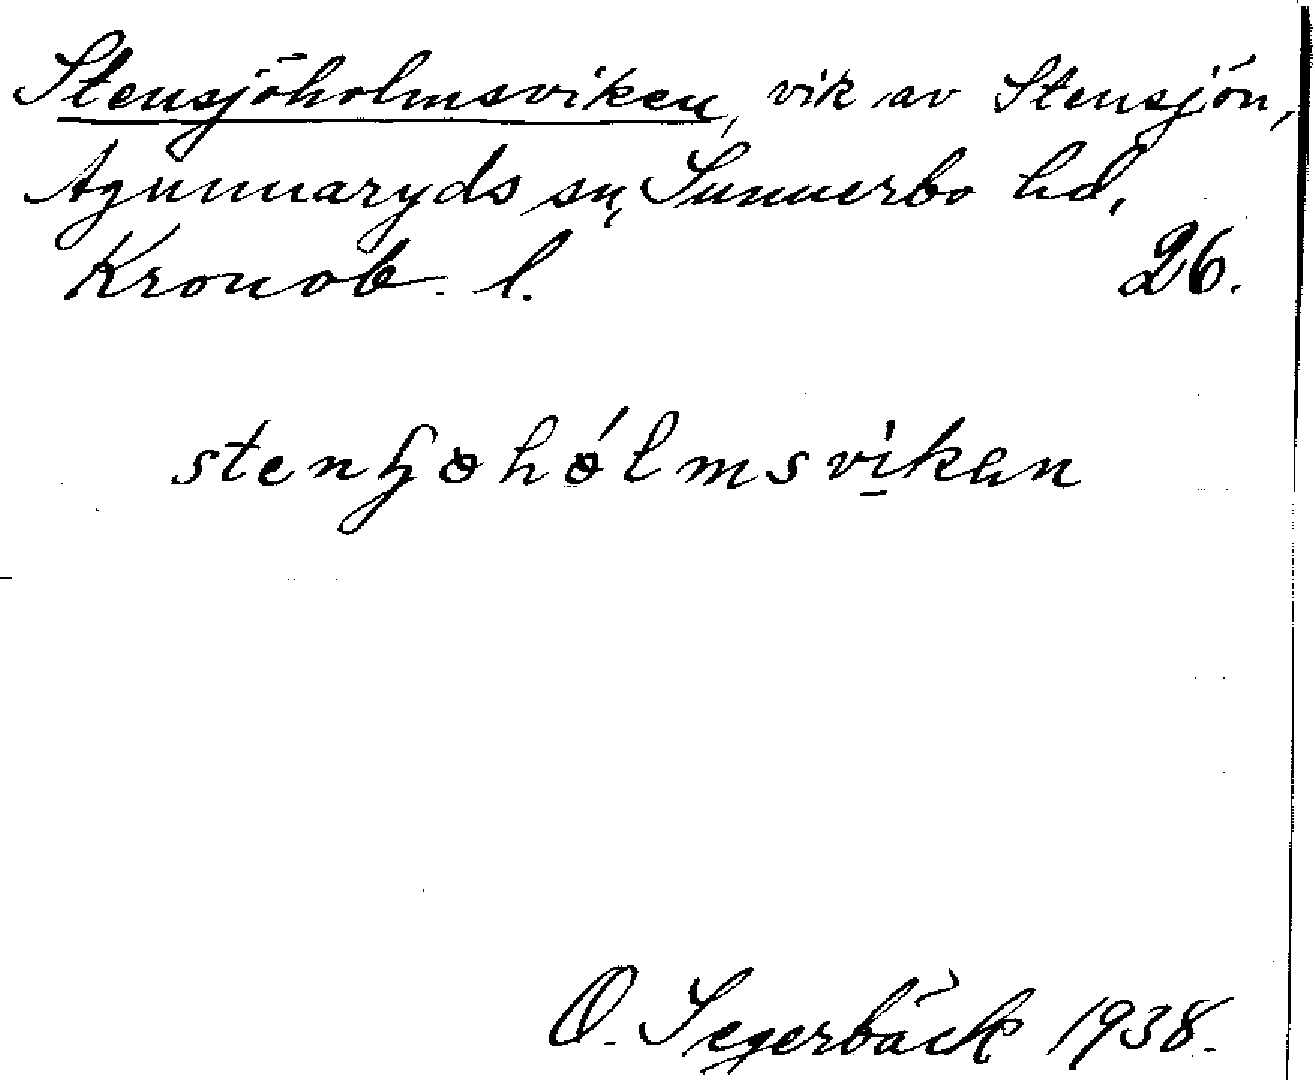 Stensjöholmsviken, vik av Stensjön,
Agunnaryds sn, Sunnerbo hd,
Kronob. l. 26.
O. Segerbäck 1938.